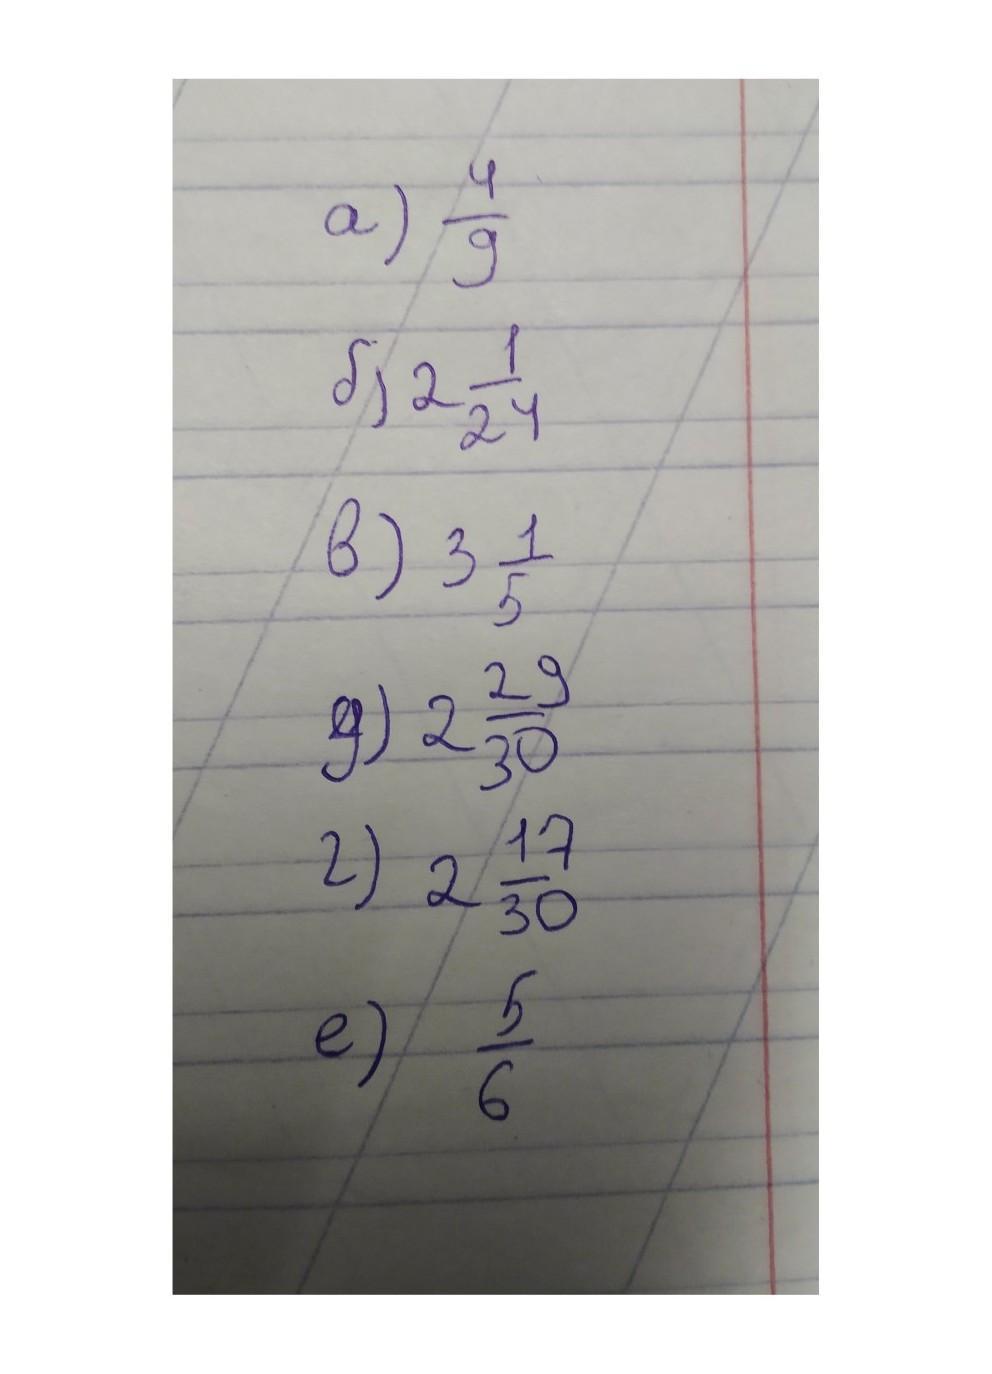 а) 4/9
б) 2 1/24
в) 3 1/5
д) 2 29/30
г) 2 17/30
е) 5/6